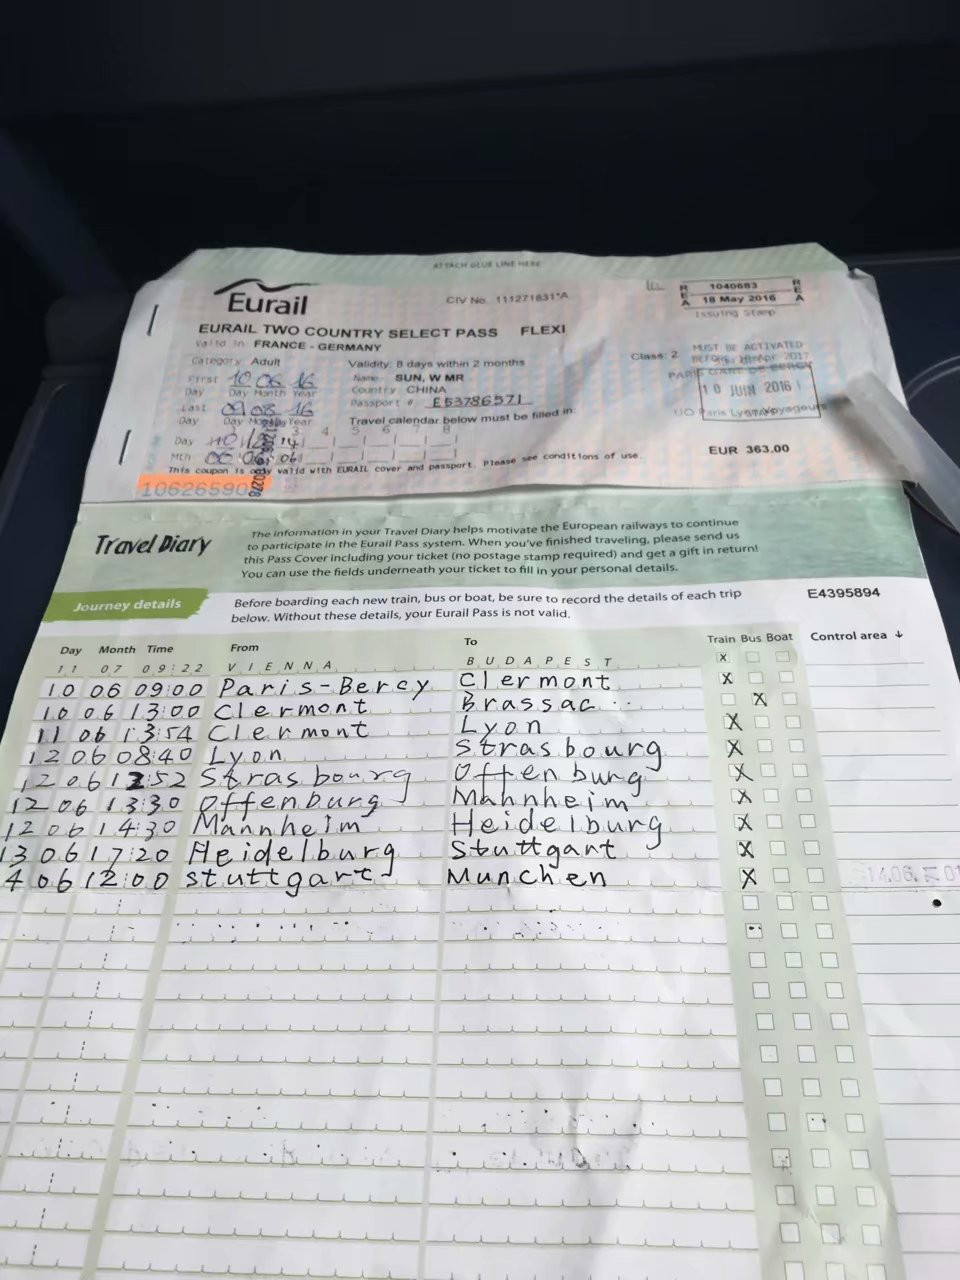 ATTACH GLUE LINE HERE
Eurail
CIV No. 111271831*A
R 1040683 R
E E
A 18 May 2016 A
Issuing Stamp
EURAIL TWO COUNTRY SELECT PASS FLEXI
Valid in FRANCE - GERMANY
Category Adult
Validity: 8 days within 2 months
Class: 2
MUST BE ACTIVATED
BEFORE 2017
First 10 06 16
Day Day Month Year
Name SUN, W MR
Country CHINA
Passport # E53786571
PARIS GARE DE BERCY
10 JUIN 2016
Last 09 08 16
Day Day Month Year
Travel calendar below must be filled in:
UO Paris Lyon Voyageurs
3 4 5 6 8
Day
Mth
EUR 363.00
This coupon is only valid with EURAIL cover and passport. Please see conditions of use.
10626590
Travel Diary
The information in your Travel Diary helps motivate the European railways to continue
to participate in the Eurail Pass system. When you've finished traveling, please send us
this Pass Cover including your ticket (no postage stamp required) and get a gift in return!
You can use the fields underneath your ticket to fill in your personal details.
Journey details
Before boarding each new train, bus or boat, be sure to record the details of each trip
below. Without these details, your Eurail Pass is not valid.
E4395894
Day Month Time From To Train Bus Boat Control area ↓
11 07 09:22 VIENNA BUDAPEST X
10 06 09:00 Paris-Bercy Clermont X
10 06 13:00 Clermont Brassac X
11 06 13:54 Clermont Lyon X
12 06 08:40 Lyon Strasbourg X
12 06 12:52 Strasbourg Offenburg X
12 06 13:30 Offenburg Mahnheim X
12 06 14:30 Mannheim Heidelburg X
13 06 17:20 Heidelburg Stuttgart X
4 06 12:00 stuttgart Munchen X
14.06.